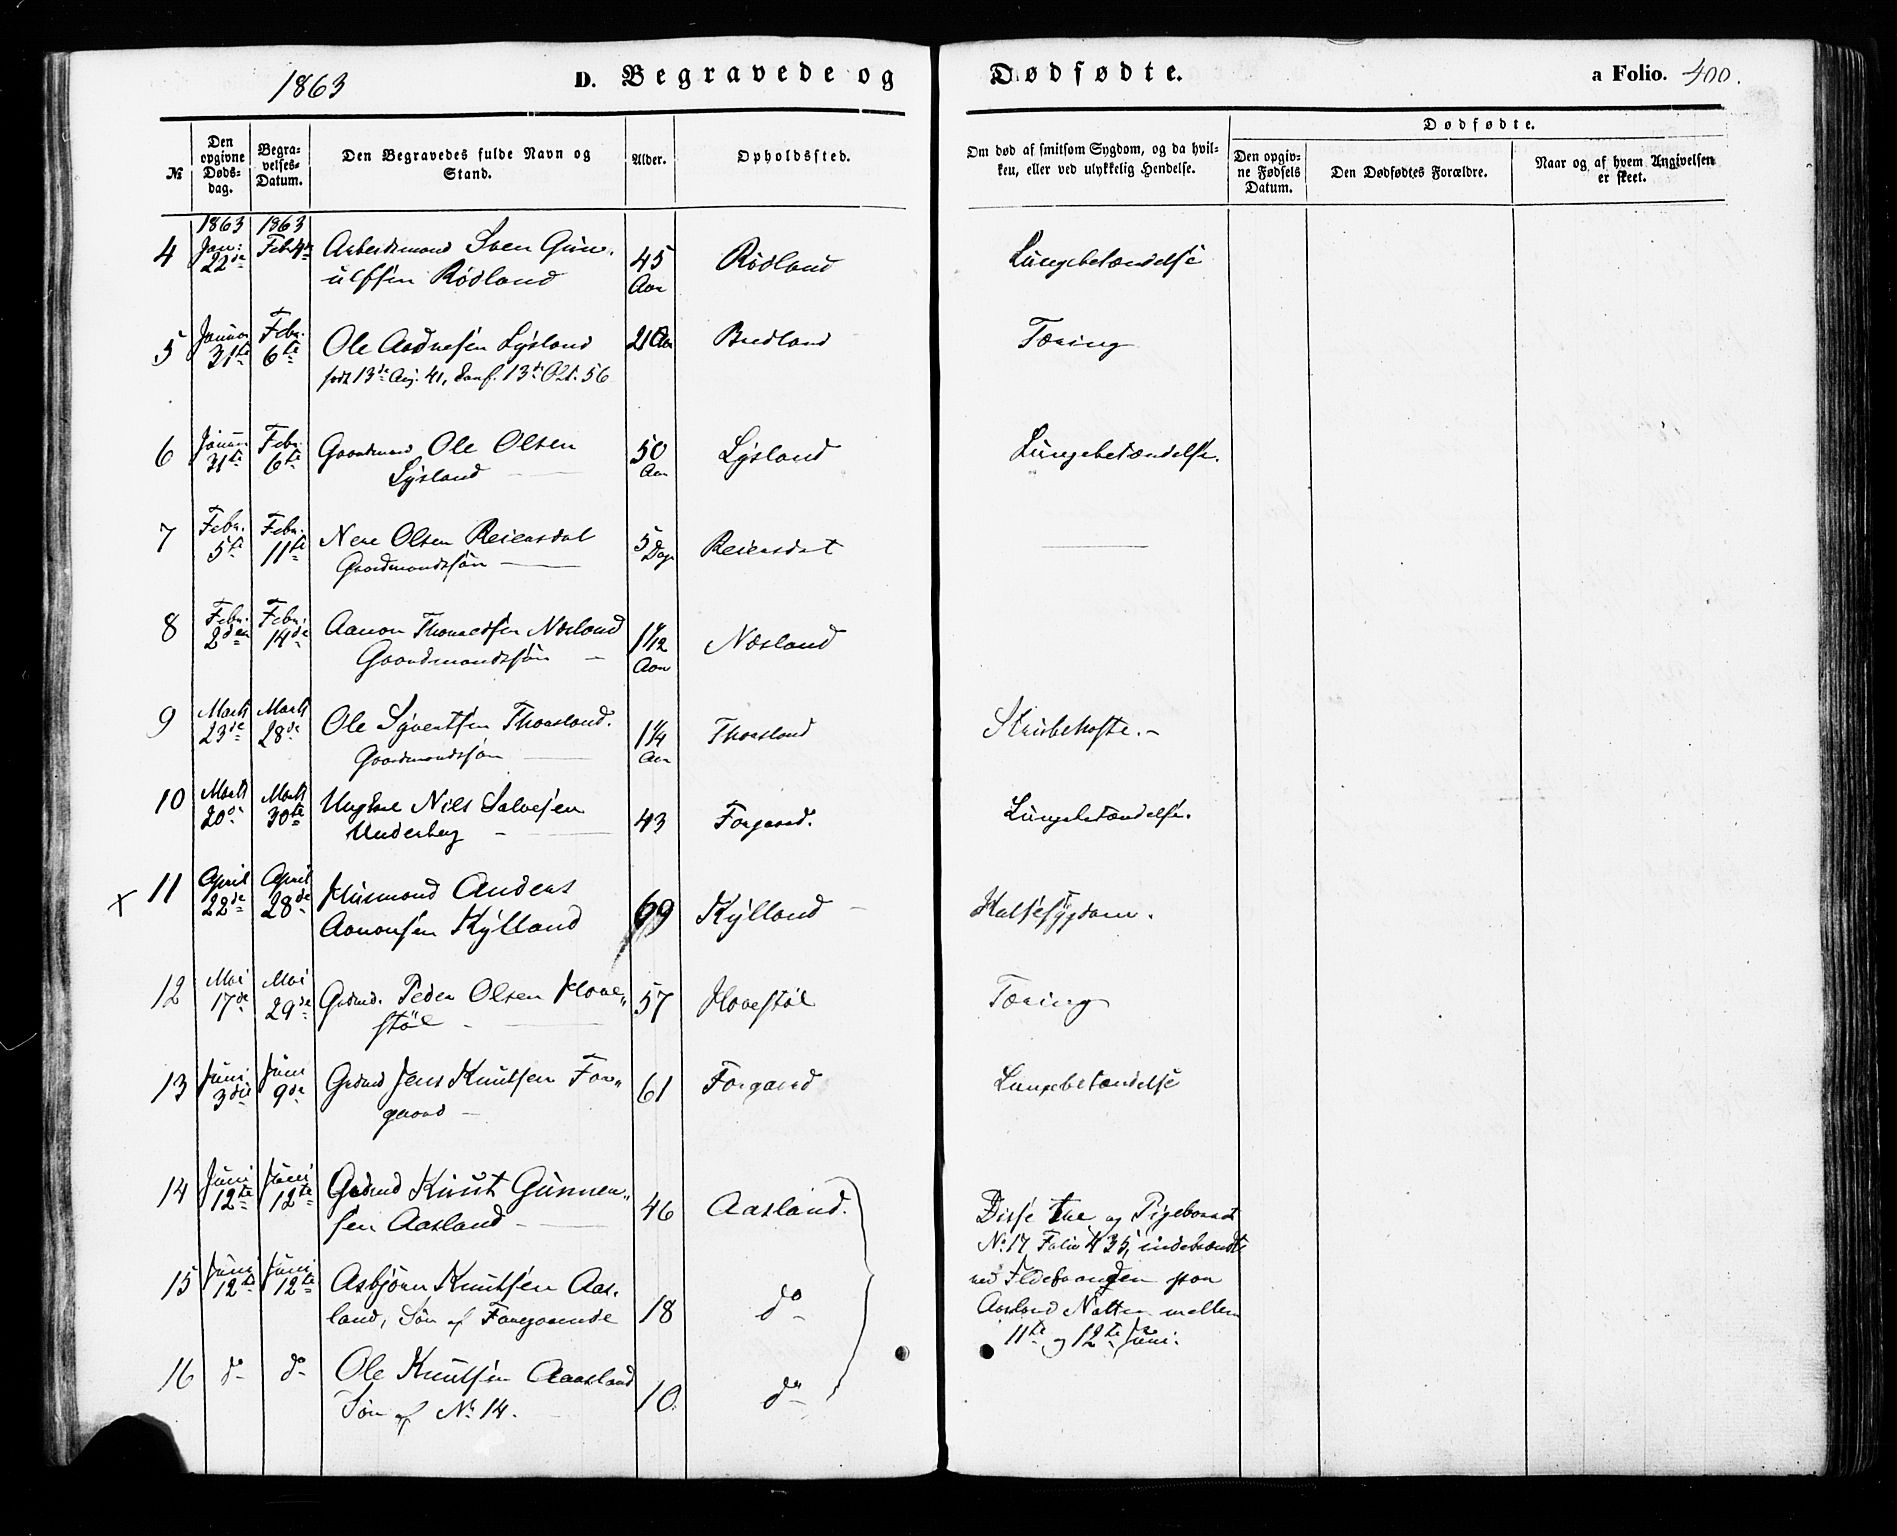 1863 D. Begravede og Dødfødte. a Folio. 400.
№ Den opgivne Døds-dag. Begra-velses-Datum. Den Begravedes fulde Navn og Stand. Alder. Opholdssted. Om død af smitsom Sygdom, og da hvil-ken, eller ved ulykkelig Hendelse. Dødfødte.
Den opgiv-ne Fødsels Datum. Den Dødfødtes Forældre. Naar og af hvem Angivelsen er skeet.
1863 1863
4 Jan: 22de Febr 4de Arbeidsmand Sven Gun- 45 Rødland Lungebetændelse
ulfsen Rødland Aar
5 Januar 31te Febr. 6te Ole Aadnesen Lysland 21 Aar Bredland Tæring
født 13de Aug. 41, Konf. 13de Okt. 56
6 Januar 31te Febr. 6te Gaardmand Ole Olsen 50 Lysland Lungebetændelse.
Lysland Aar
7 Febr. 5te Febr. 11te Nere Olsen Reiersdal 5 Dage Reiersdal
Gaardmandssøn
8 Febr. 2den Febr. 14de Aanon Thomassen Næsland 1 1/12 Næsland
Gaardmandssøn Aar
9 Marts 23de Marts 28de Ole Syvertsen Thorsland. 1 1/4 Thorsland Strubehoste.
Gaardmandssøn Aar
10 Marts 20de Marts 30te Ungkarl Nils Salvesen 43 Forgard. Lungebetændelse.
Underberg
x 11 April 22de April 28de Husmand Anders 69 Kylland Halsesygdom.
Aanonsen Kylland
12 Mai 17de Mai 29de Grdmd. Peder Olsen Hove- 57 Hovestøl Tæring
støl
13 Juni 3die Juni 9de Grdmd Jens Knutsen For- 61 Forgard Lungebetændelse
gaard
14 Juni 12te Juni 12te Grdmd Knut Gunnen- 46 Aasland. Disse tre og Pigebarnet
sen Aasland No 17 Folio 435, indebrændte
15 Juni 12te Juni 12te Asbjørn Knutsen Aas- 18 do ved Ildebranden paa
land, Søn af Foregaaende Aasland Natten mellem
16 do do Ole Knutsen Aaasland 10 do 11te og 12te Juni.
Søn af No 14.